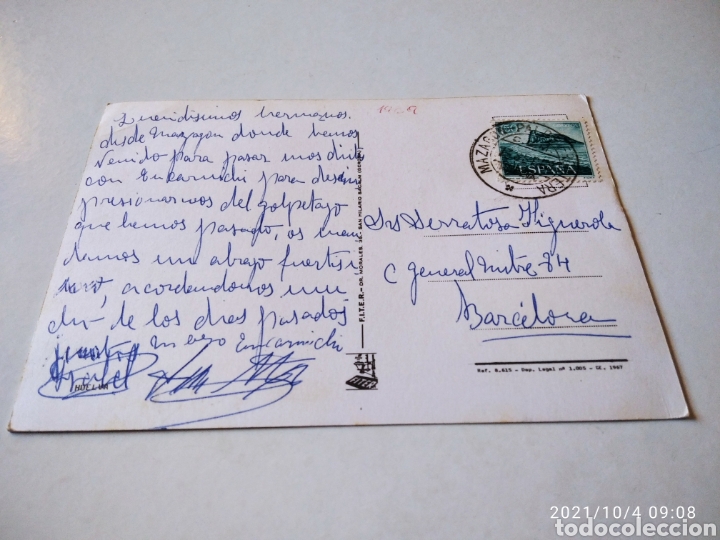 Queridisimos hermanos.
desde Mazagon donde hemos
venido para pasar unos dias
con Encarnichi para desim
presionarnos del golpetazo
que hemos pasado, os man
damos un abrazo fuertisi
mo, acordandonos mu
chi de los dias pasados
juntos
Encarnichi
HUELVA
F.I.T.E.R.
MAZAGON-PALOS
ESPAÑA
Srs Serratosa Figuerola
C General Mitre 84
Barcelona
Ref. 8.615 - Dep. Legal nº 1.805 - SE. 1967
2021/10/4 09:08
todocoleccion.net